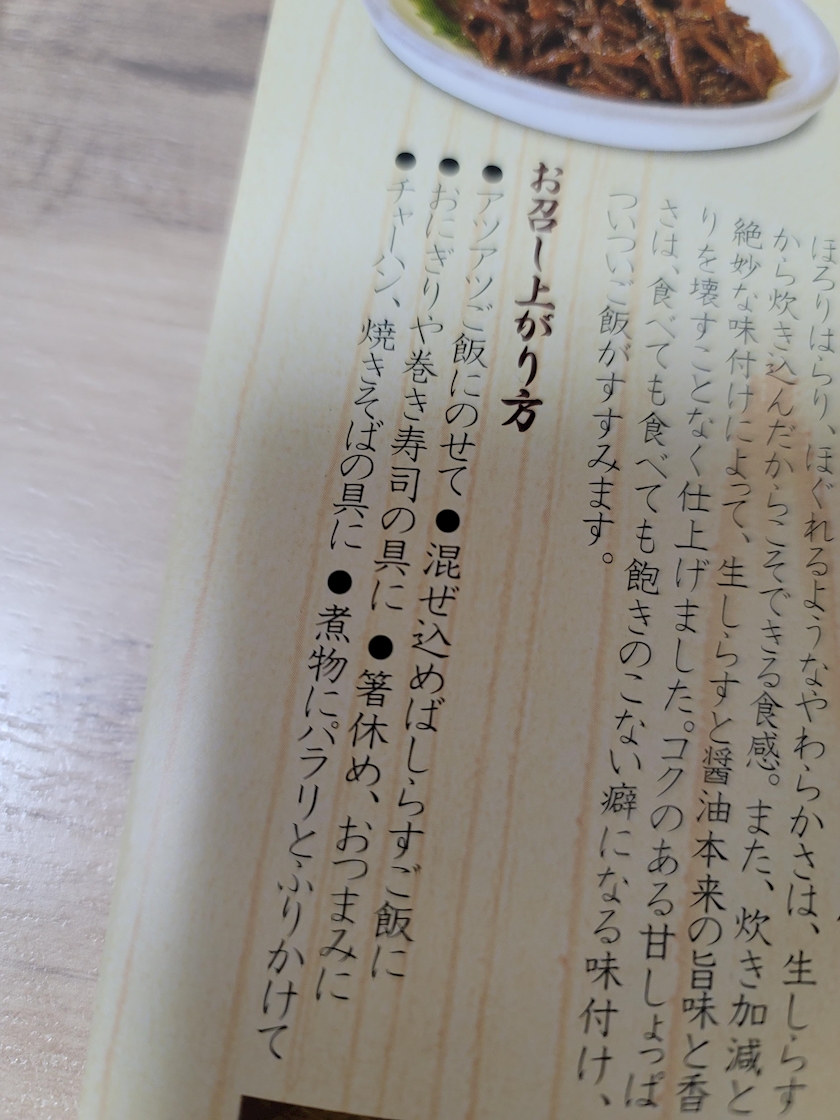 ほろりはらり、ほぐれるようなやわらかさは、生しらす
から炊き込んだからこそできる食感。また、炊き加減と
絶妙な味付けによって、生しらすと醤油本来の旨味と香
りを壊すことなく仕上げました。コクのある甘しょっぱ
さは、食べても食べても飽きのこない癖になる味付け、
ついついご飯がすすみます。
お召し上がり方
●アツアツご飯にのせて ●混ぜ込めばしらすご飯に
●おにぎりや巻き寿司の具に ●箸休め、おつまみに
●チャーハン、焼きそばの具に ●煮物にパラリとふりかけて